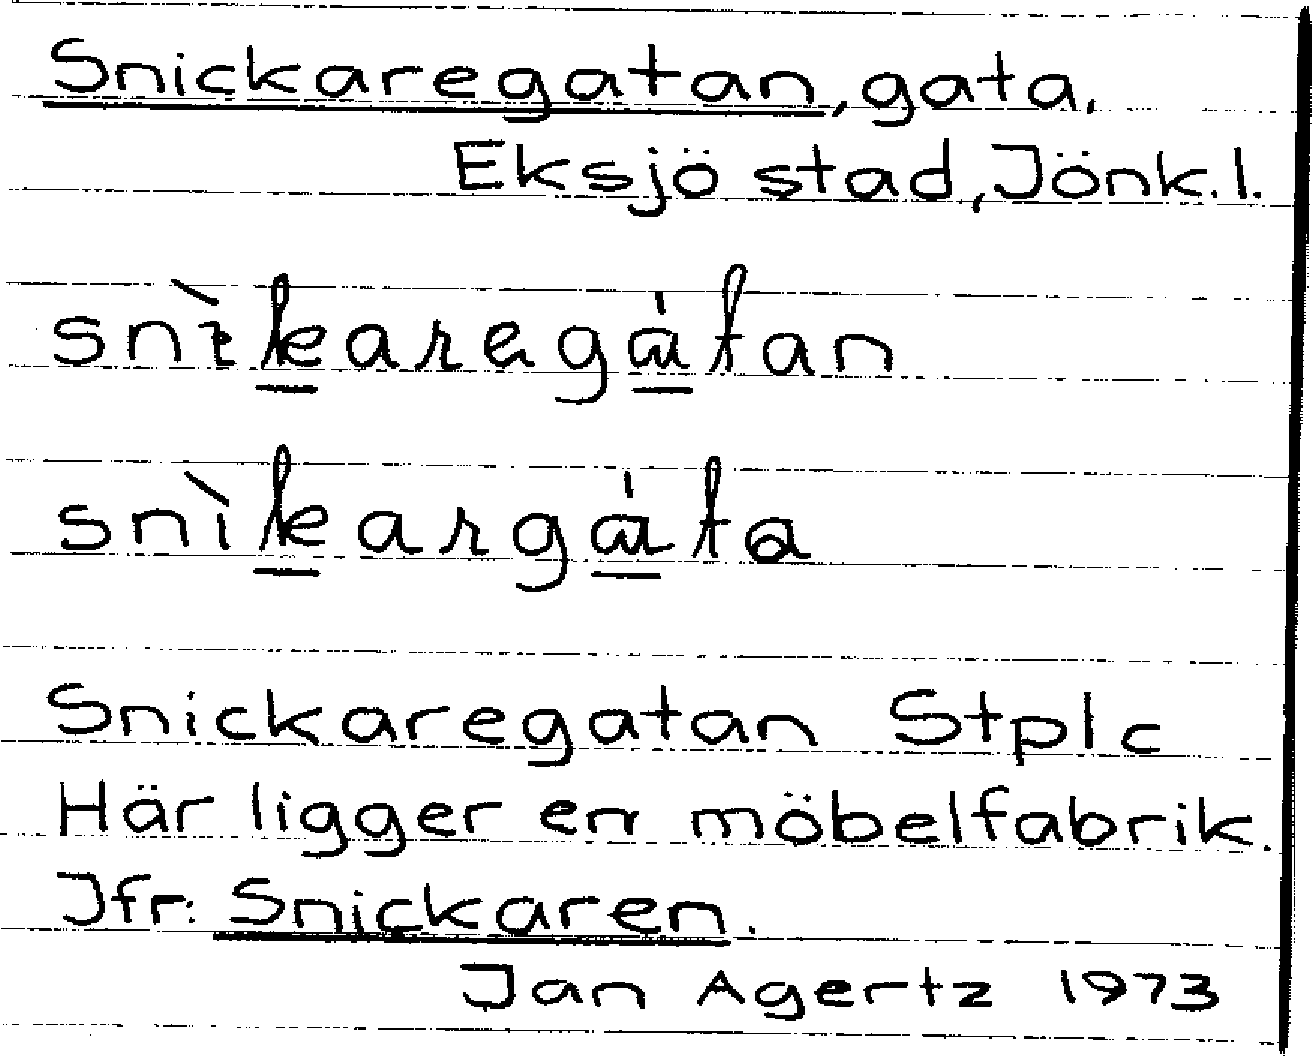 Snickaregatan, gata,
Eksjö stad, Jönk. l.
snìkaregɑ̍tan
snìkargɑ̍ta
Snickaregatan Stplc
Här ligger en möbelfabrik.
Jfr: Snickaren.
Jan Agertz 1973